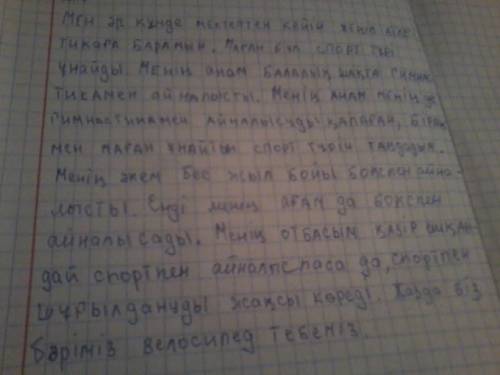 Мен әр күнде мектептен кейін жеңіл атле
тикаға барамын. Маған бұл спорт түрі
ұнайды. Менің анам балалық шақта гимнас
тикамен айналысты. Менің анам менің де
гимнастикамен айналысуды қалаған, бірақ
мен маған ұнайтын спорт түрін таңдадым.
Менің әкем бес жыл бойы бокспен айна-
лысты. Енді менің ағам да бокспен
айналысады. Менің отбасым қазір ешқан-
дай спортпен айналыспаса да, спортпен
шұғылдануды жақсы көреді. Жазда біз
бәріміз велосипед тебеміз.